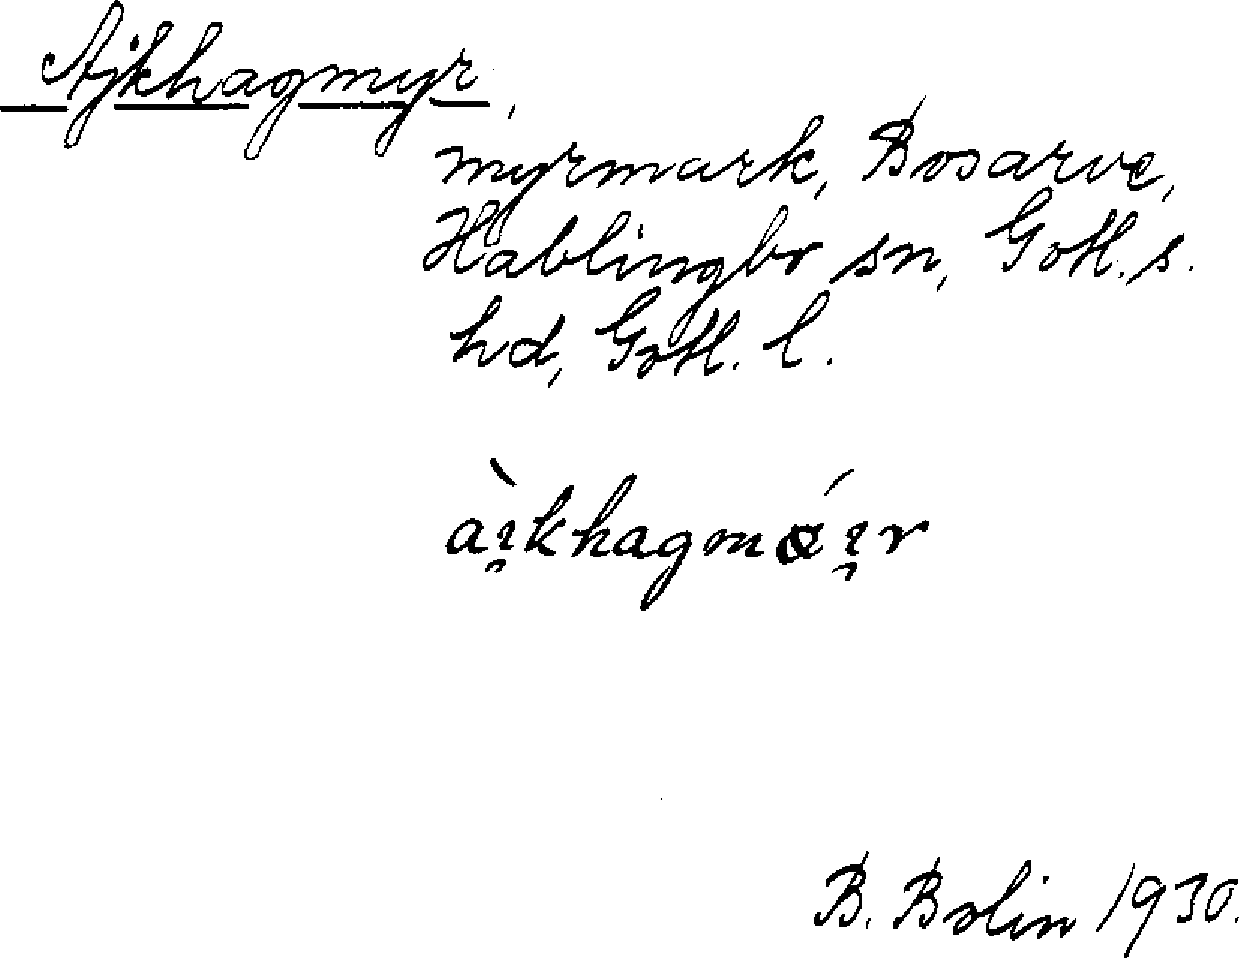 Ajkhagmyr,
myrmark, Bosarve,
Hablingbo sn, Gotl. s.
hd, Gotl. l.
àı̯khagmɷ́ı̯r
B. Bolin 1930.